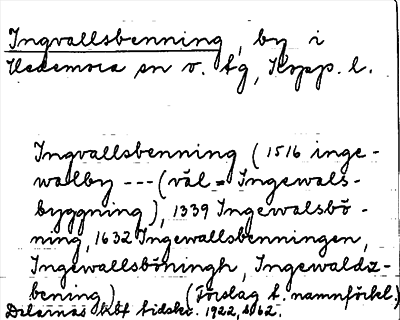 Ingvallsbenning, by i
Hedemora sn o. tg, Kopp. l.
Ingvallsbenning (1516 inge-
walby --- (väl = Ingewals-
byggning), 1339 Ingewalsbö-
ning, 1632 Ingewallsbenningen,
Ingewallsböningh, Ingewaldz-
bening) (Förslag t. namnförkl.)
Dalarnas hbf tidskr. 1922, s. 62.